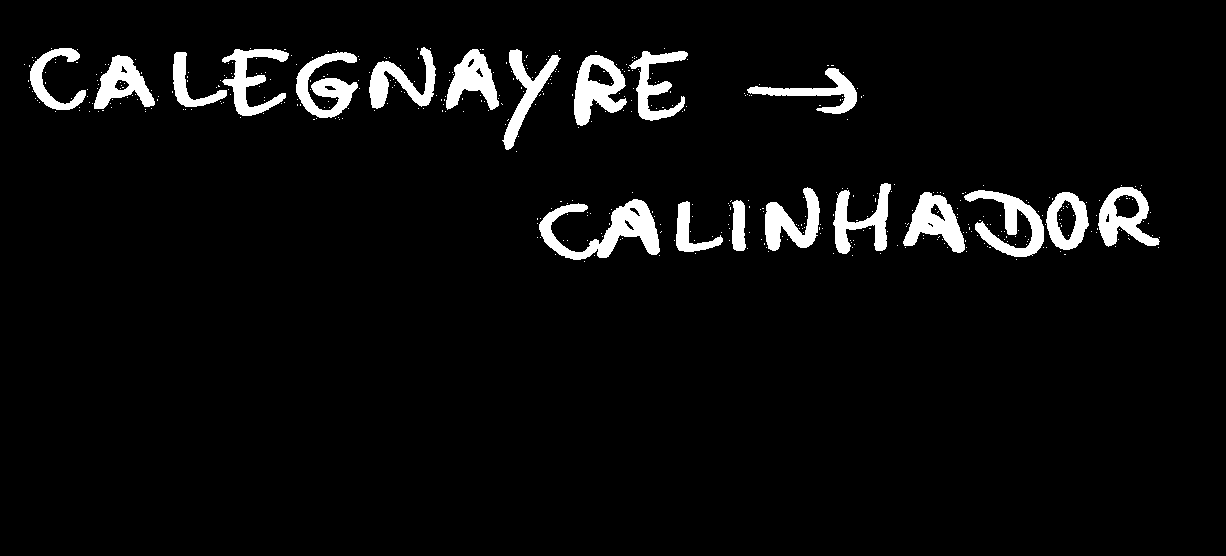 CALEGNAYRE →
CALINHADOR